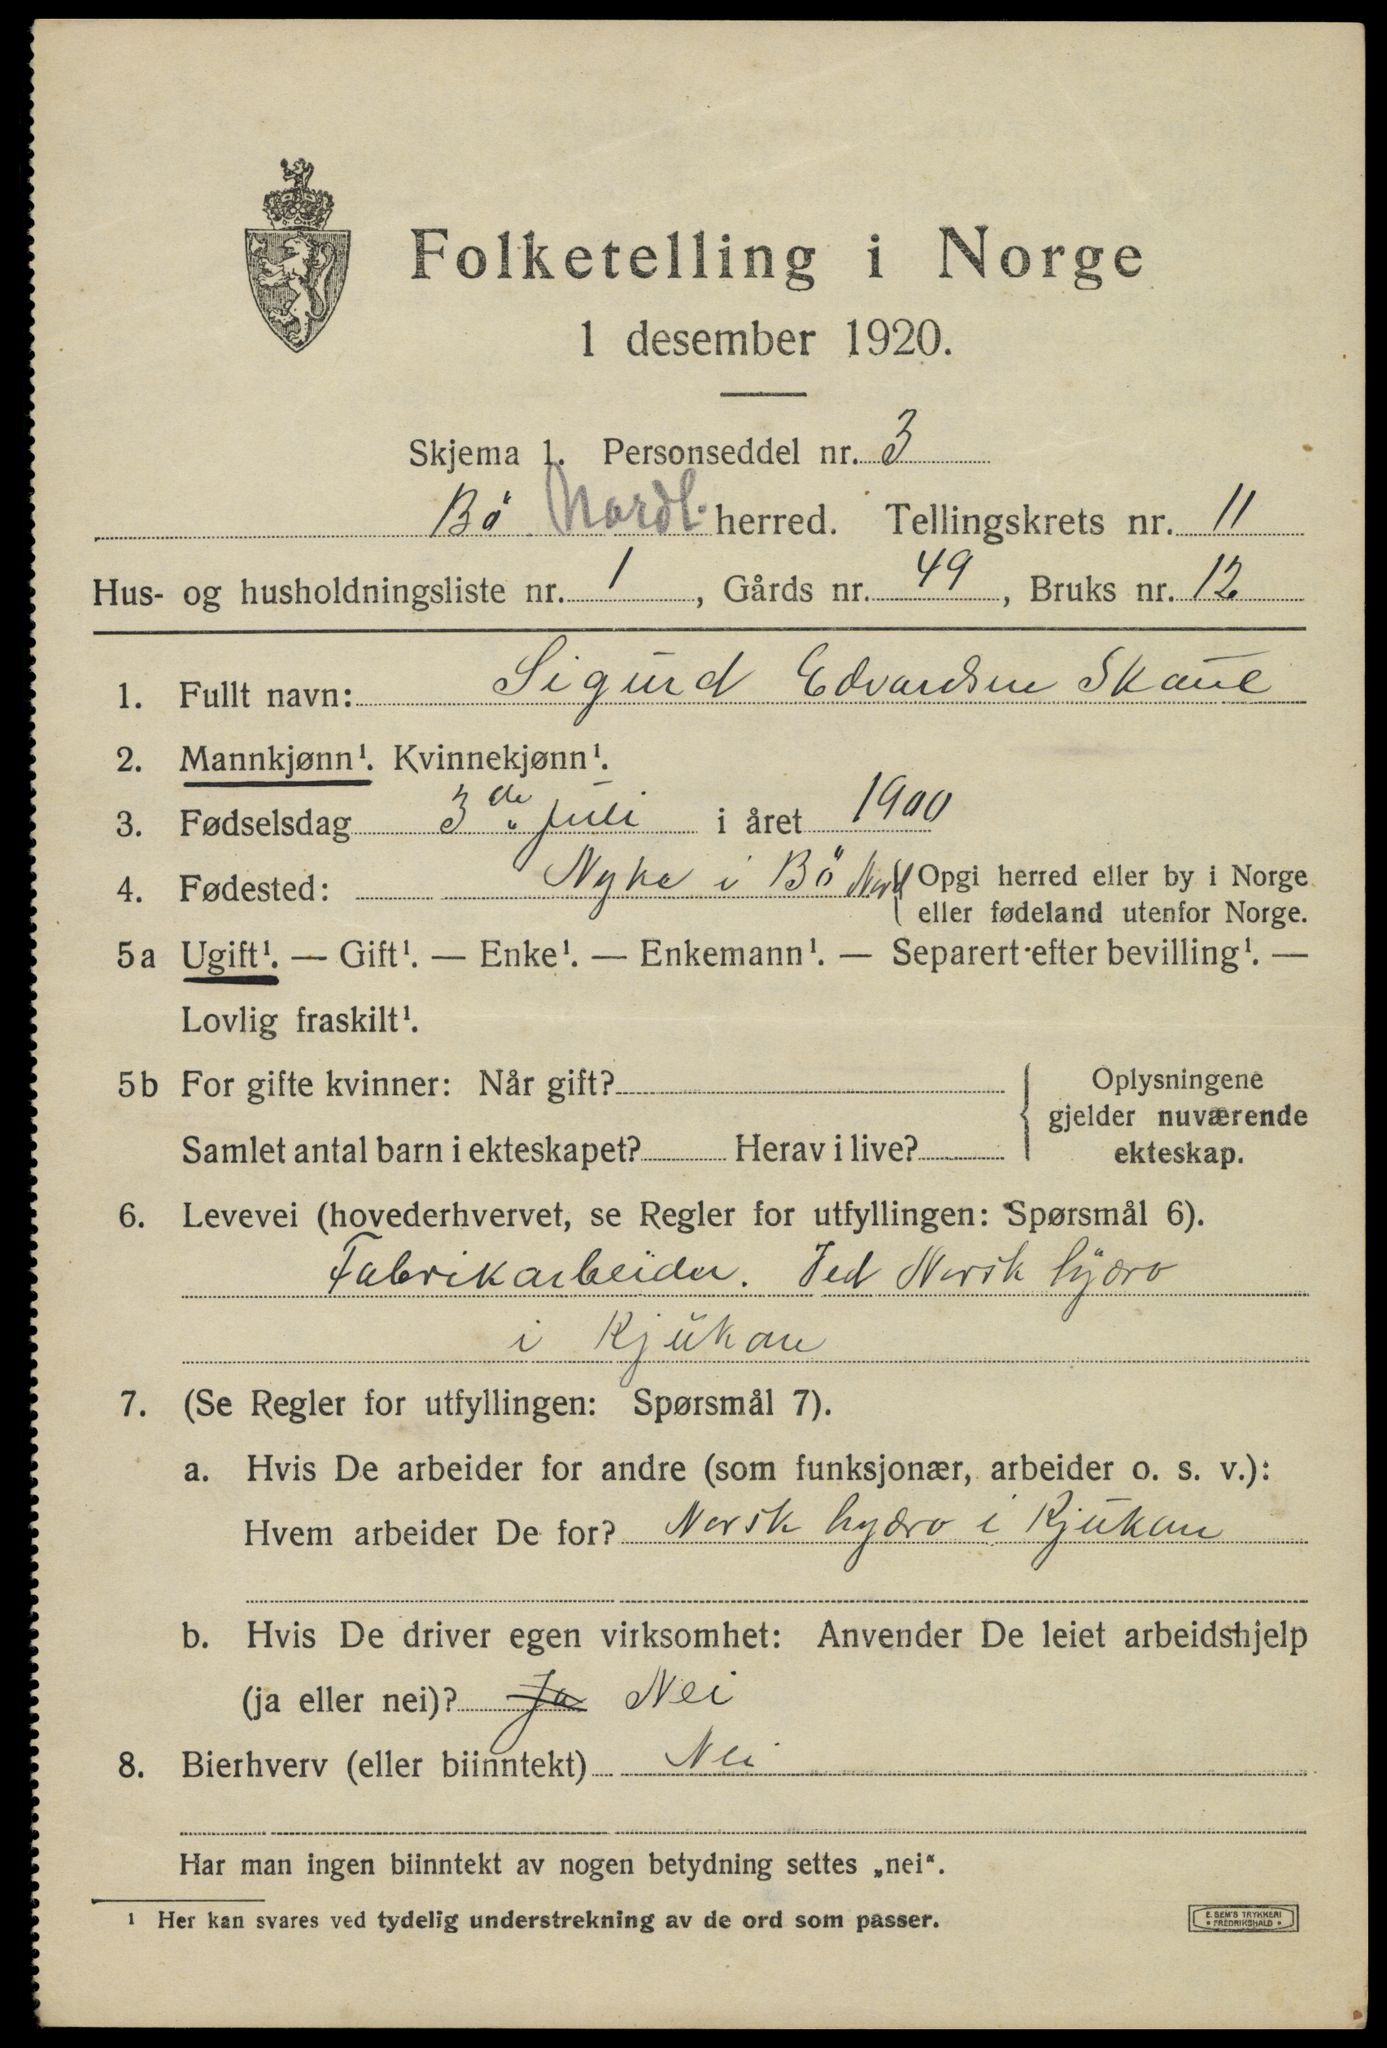 Folketelling i Norge
1 desember 1920.
Skjema 1. Personseddel nr. 3
Bö Nordl. herred. Tellingskrets nr. 11
Hus- og husholdningsliste nr. 1, Gårds nr. 49, Bruks nr. 12
1. Fullt navn: Sigurd Edvardsen
2. Mannkjønn¹. Kvinnekjønn¹.
3. Fødselsdag 3de Juli i året 1900
4. Fødested: Nyke i Bö Nordl { Opgi herred eller by i Norge
eller fødeland utenfor Norge.
5a Ugift¹. — Gift¹. — Enke¹. — Enkemann¹. — Separert efter bevilling¹. —
Lovlig fraskilt¹.
5b For gifte kvinner: Når gift?
Samlet antal barn i ekteskapet? Herav i live?
{ Oplysningene
gjelder nuværende
ekteskap.
6. Levevei (hovederhvervet, se Regler for utfyllingen: Spørsmål 6).
Fabrikarbeider. Ved Norsk hydro
i Rjukan
7. (Se Regler for utfyllingen: Spørsmål 7).
a. Hvis De arbeider for andre (som funksjonær, arbeider o. s. v.):
Hvem arbeider De for? Norsk hydro i Rjukan
b. Hvis De driver egen virksomhet: Anvender De leiet arbeidshjelp
(ja eller nei)? Ja Nei
8. Bierhverv (eller biinntekt) Nei
Har man ingen biinntekt av nogen betydning settes „nei“.
¹ Her kan svares ved tydelig understrekning av de ord som passer.
E. SEM'S TRYKKERI
• FREDRIKSHALD •